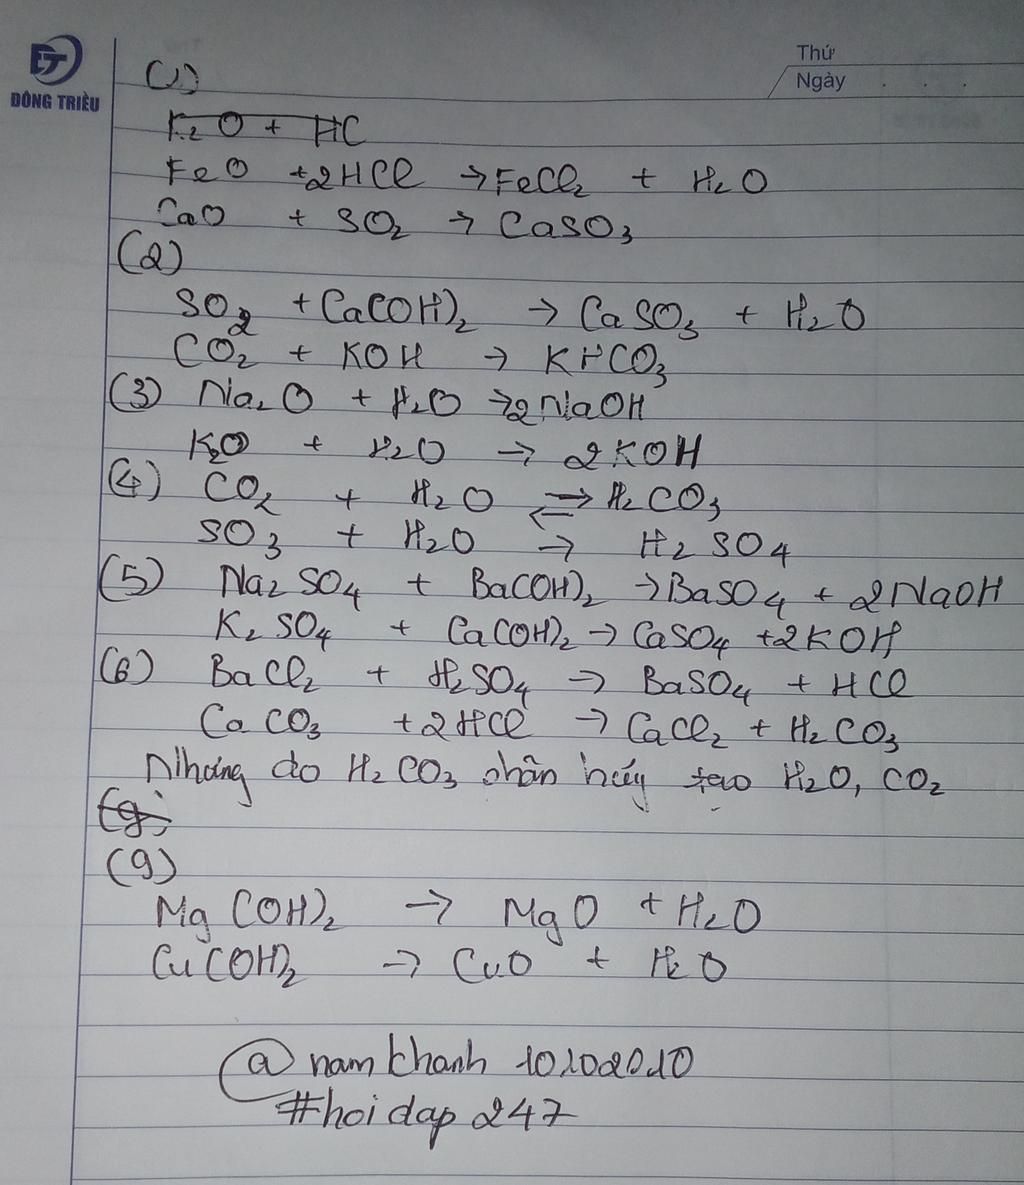 ĐÔNG TRIỀU
Thứ
Ngày
(1)
K₂O + HC
FeO +2HCl → FeCl₂ + H₂O
CaO + SO₂ → CaSO₃
(2)
SO₂ + Ca(OH)₂ → CaSO₃ + H₂O
CO₂ + KOH → KHCO₃
(3) Na₂O + H₂O → 2NaOH
K₂O + H₂O → 2KOH
(4) CO₂ + H₂O ⇌ H₂CO₃
SO₃ + H₂O → H₂SO₄
(5) Na₂SO₄ + Ba(OH)₂ → BaSO₄ + 2NaOH
K₂SO₄ + Ca(OH)₂ → CaSO₄ +2KOH
(6) BaCl₂ + H₂SO₄ → BaSO₄ + HCl
CaCO₃ +2HCl → CaCl₂ + H₂CO₃
Nhưng do H₂CO₃ phân hủy tạo H₂O, CO₂
(9)
Mg(OH)₂ → MgO + H₂O
Cu(OH)₂ → CuO + H₂O
@namkhanh10102010
#hoidap247